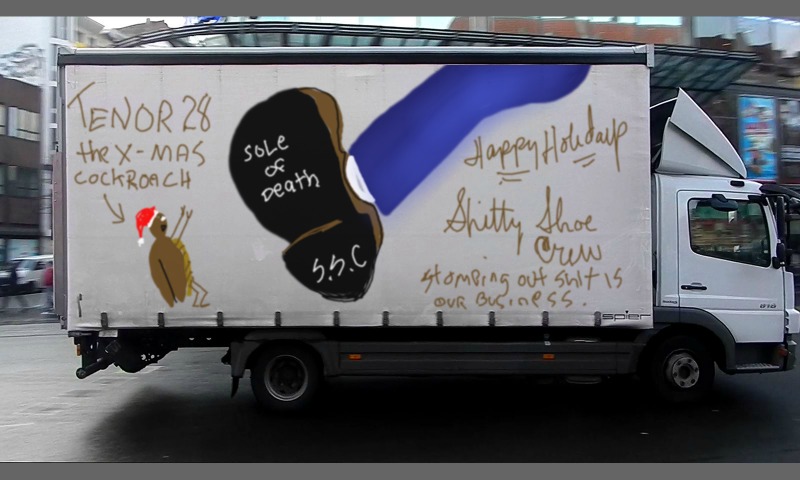 TENOR 28
the X-MAS
COCKROACH
SOLE
OF
DEATH
S.S.C
Happy Holidays
Shitty Shoe
Crew
Stomping out shit is
our Business.
spier
818